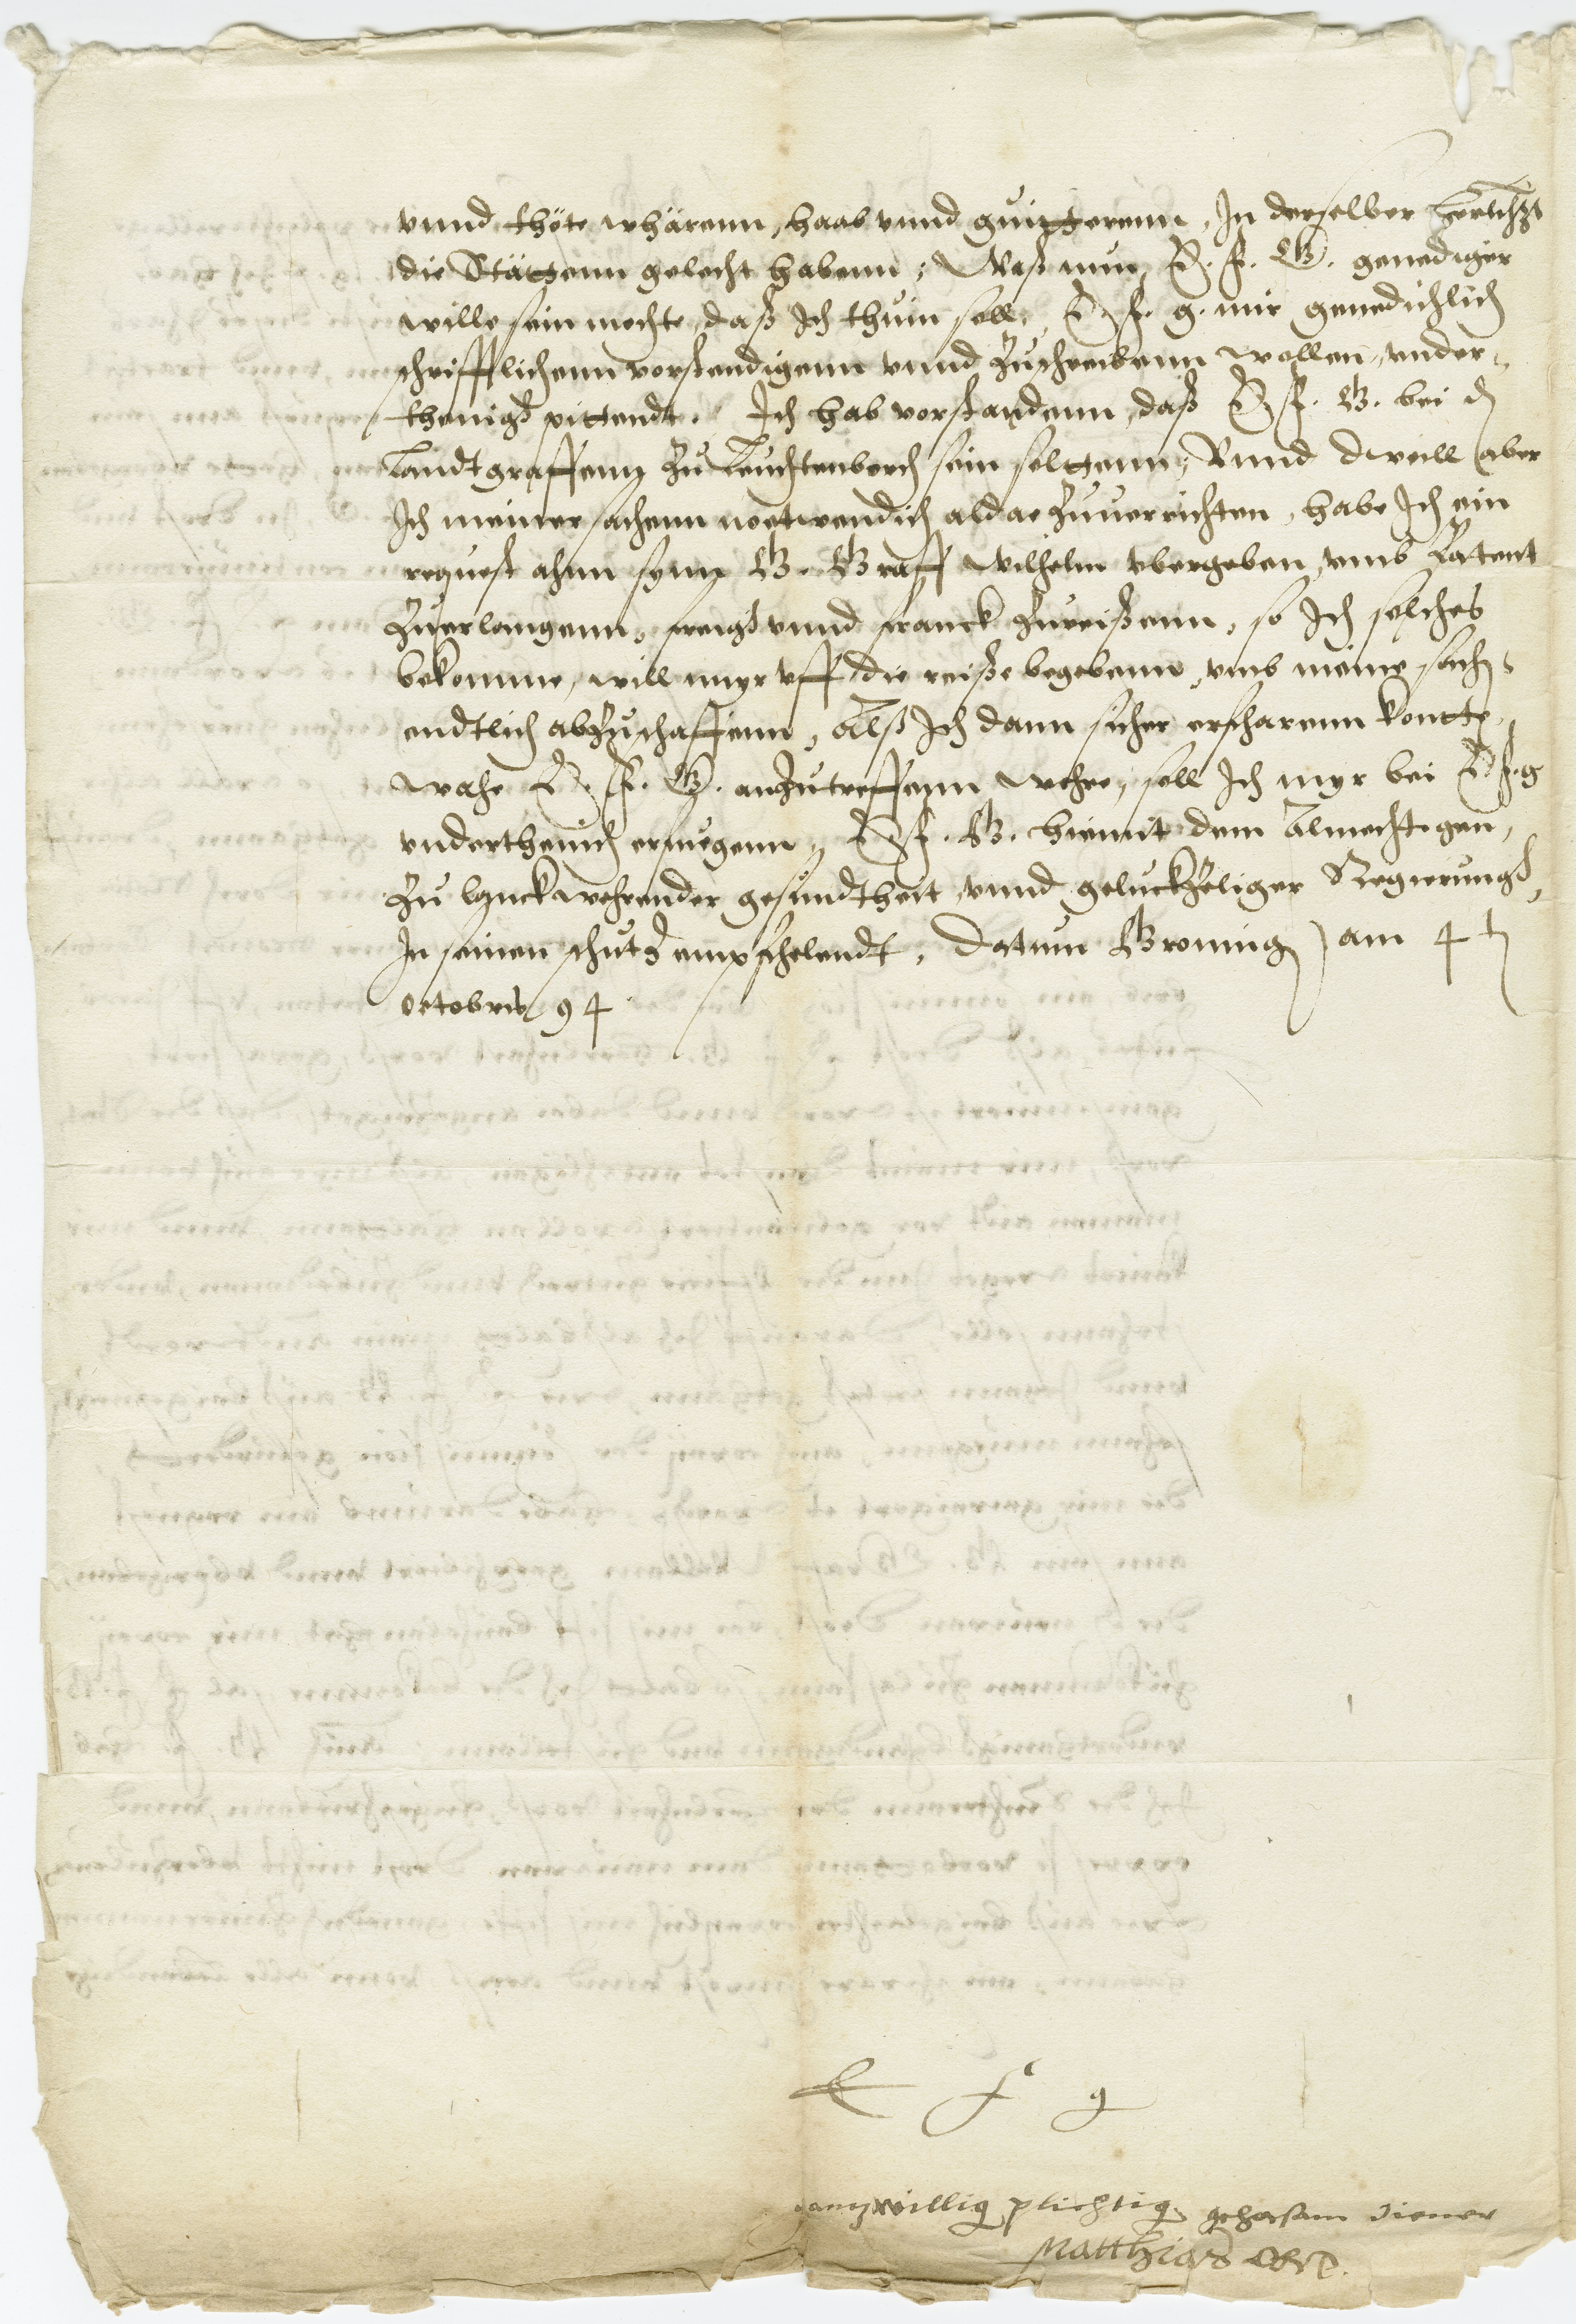 vnnd thöte whärenn, haab vnnd guitterenn, In derselber
die Stättenn gelecht habenn; Waß nun, E. f. G. genediger
wille sein mochte, daß Ich thuin soll, E f. g. mir genedichlich
schrifftlichenn vorstendigenn vnnd Zuschreibenn wollen, vnder-
thenigst pittendt. Ich hab vorstandenn, daß E f. G. bei d
Landtgraffenn Zu Leuchtenberch sein soltenn, Vnnd dweill aber
Ich meiner sachenn noetwendich aldae Zuuerrichten, habe Ich ein
request ahnn synn G. Graff Wilhelm vbergeben, vmb Patent
Zuerlangenn, freigh vnnd franck Zureißenn, so Ich solches
bekomme, will myr vff die reiße begebenn, vmb meine sach
endtlich abZuschaffenn, Alß Ich dann sicher erfharenn kontte
wahe E. f. G. anZutreffenn wehre, soll Ich myr bei E f. g
vndertheinich erfuigenn, E f. G. hiemit dem Almechtigen,
Zu lanckwehrender gesundtheit, vnnd geluckZeliger Regierungh,
In seinen schutz empfhelendt, Datum Groning am 4 t
octobris 94
E f g
gantzwillig plichtig gehorsam diener
Matthias